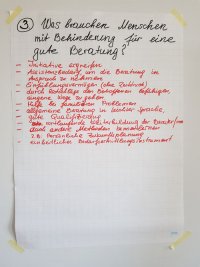 ③ Was brauchen Menschen
mit Behinderung für eine
gute Beratung?
- Initiative ergreifen
- Assistenzbedarf um die Beratung in
Anspruch zu nehmen
- Einfühlungsvermögen (ohne Zeitdruck)
- durch Ratschläge den Betroffenen befähigen,
eigene Wege zu gehen
- Hilfe bei finanziellen Problemen
- allgemeine Beratung in leichter Sprache,
- gute Qualifizierung
- fortlaufende Weiterbildung der Berater/innen
- durch andere Methoden
z.B. Persönliche Zukunftsplanung
- einheitliches Bedarfsermittlungsinstrument